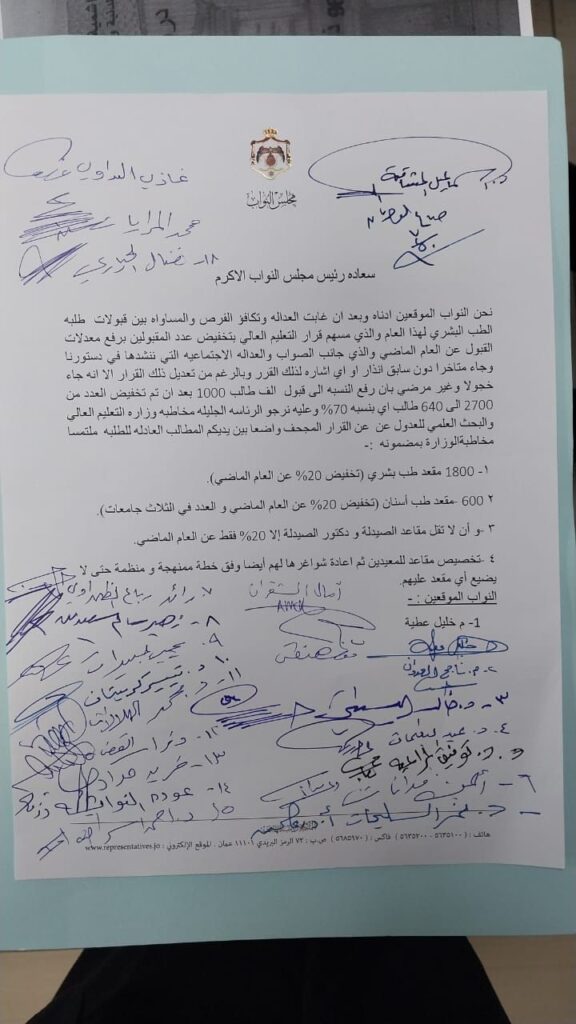 مجلس النواب
غازي البداوي
محمد المرايا
١٨- نضال الحياري
سعاده رئيس مجلس النواب الاكرم
نحن النواب الموقعين ادناه وبعد ان غابت العداله وتكافؤ الفرص والمساواه بين قبولات طلبه
الطب البشري لهذا العام والذي مسهم قرار التعليم العالي بتخفيض عدد المقبولين برفع معدلات
القبول عن العام الماضي والذي جانب الصواب والعداله الاجتماعيه التي ننشدها في دستورنا
وجاء متاخرا دون سابق انذار او اي اشاره لذلك القرر وبالرغم من تعديل ذلك القرار الا انه جاء
خجولا وغير مرضي بان رفع النسبه الى قبول الف طالب 1000 بعد ان تم تخفيض العدد من
2700 الى 640 طالب اي بنسبه 70% وعليه نرجو الرئاسه الجليله مخاطبه وزاره التعليم العالي
والبحث العلمي للعدول عن عن القرار المجحف واضعا بين يديكم المطالب العادله للطلبه ملتمسا
مخاطبةالوزارة بمضمونه :-
١- 1800 مقعد طب بشري (تخفيض 20% عن العام الماضي).
٢ 600 -مقعد طب أسنان (تخفيض 20% عن العام الماضي و العدد في الثلاث جامعات).
٣ -و أن لا تقل مقاعد الصيدلة و دكتور الصيدلة إلا 20% فقط عن العام الماضي.
٤ -تخصيص مقاعد للمعيدين ثم اعادة شواغرها لهم أيضا وفق خطة ممنهجة و منظمة حتى لا
يضيع أي مقعد عليهم.
النواب الموقعين :-
1- م خليل عطية
٣- د.
٤- د. عيد
٦- أيمن مدانات
آمال الشقران
٧ رائد رباع الظهراوي
٨-
٩-
١٠- د. تيسير كريشان
١١- د. محمد الهلالات
١٢- د فراس القضاة
١٣- فريد حداد
١٤- عودة النوايشة
١٥ د. احمد
هاتف : ( ٥٦٣٥١٠٠ - ٥٦٣٥٢٠٠ ) فاكس : ( ٥٦٨٥٩٧٠ ) ص.ب : ٧٢ الرمز البريدي ١١١٠١ عمان . الموقع الإلكتروني : www.representatives.jo